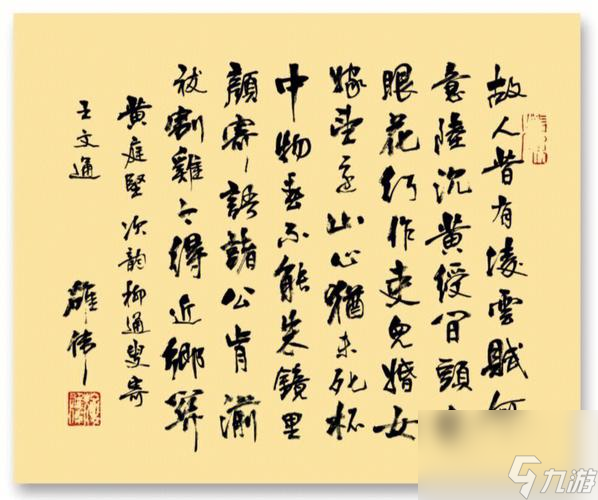 故人昔有凌雲賦何
意陸沉黄綬间頭
眼花行作吏兒婚女
嫁望還山心猶未死杯
中物春不能朱鏡里
顏寄語諸公肯湔
祓割雞今得近鄉関
黄庭堅次韵柳通叟寄
王文通
九游